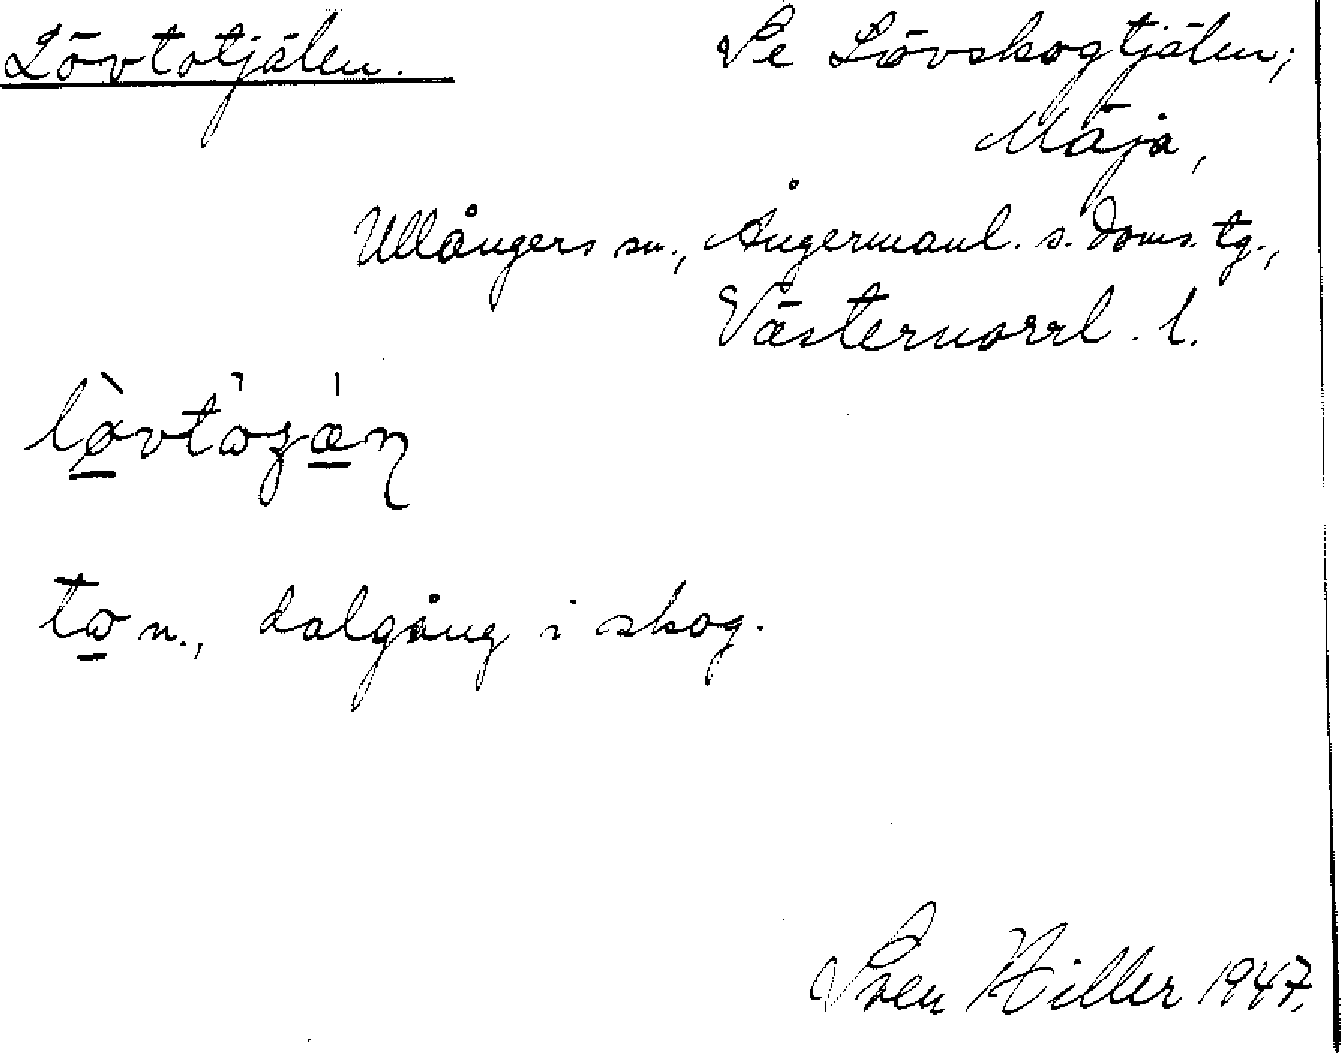 Lövtotjälen.
Se Lövskogtjälen;
Mäja,
Ullångers sn., Ångermanl. s. doms. tg.,
Västernorrl. l.
n., dalgång i skog.
Sven Hiller 1947.